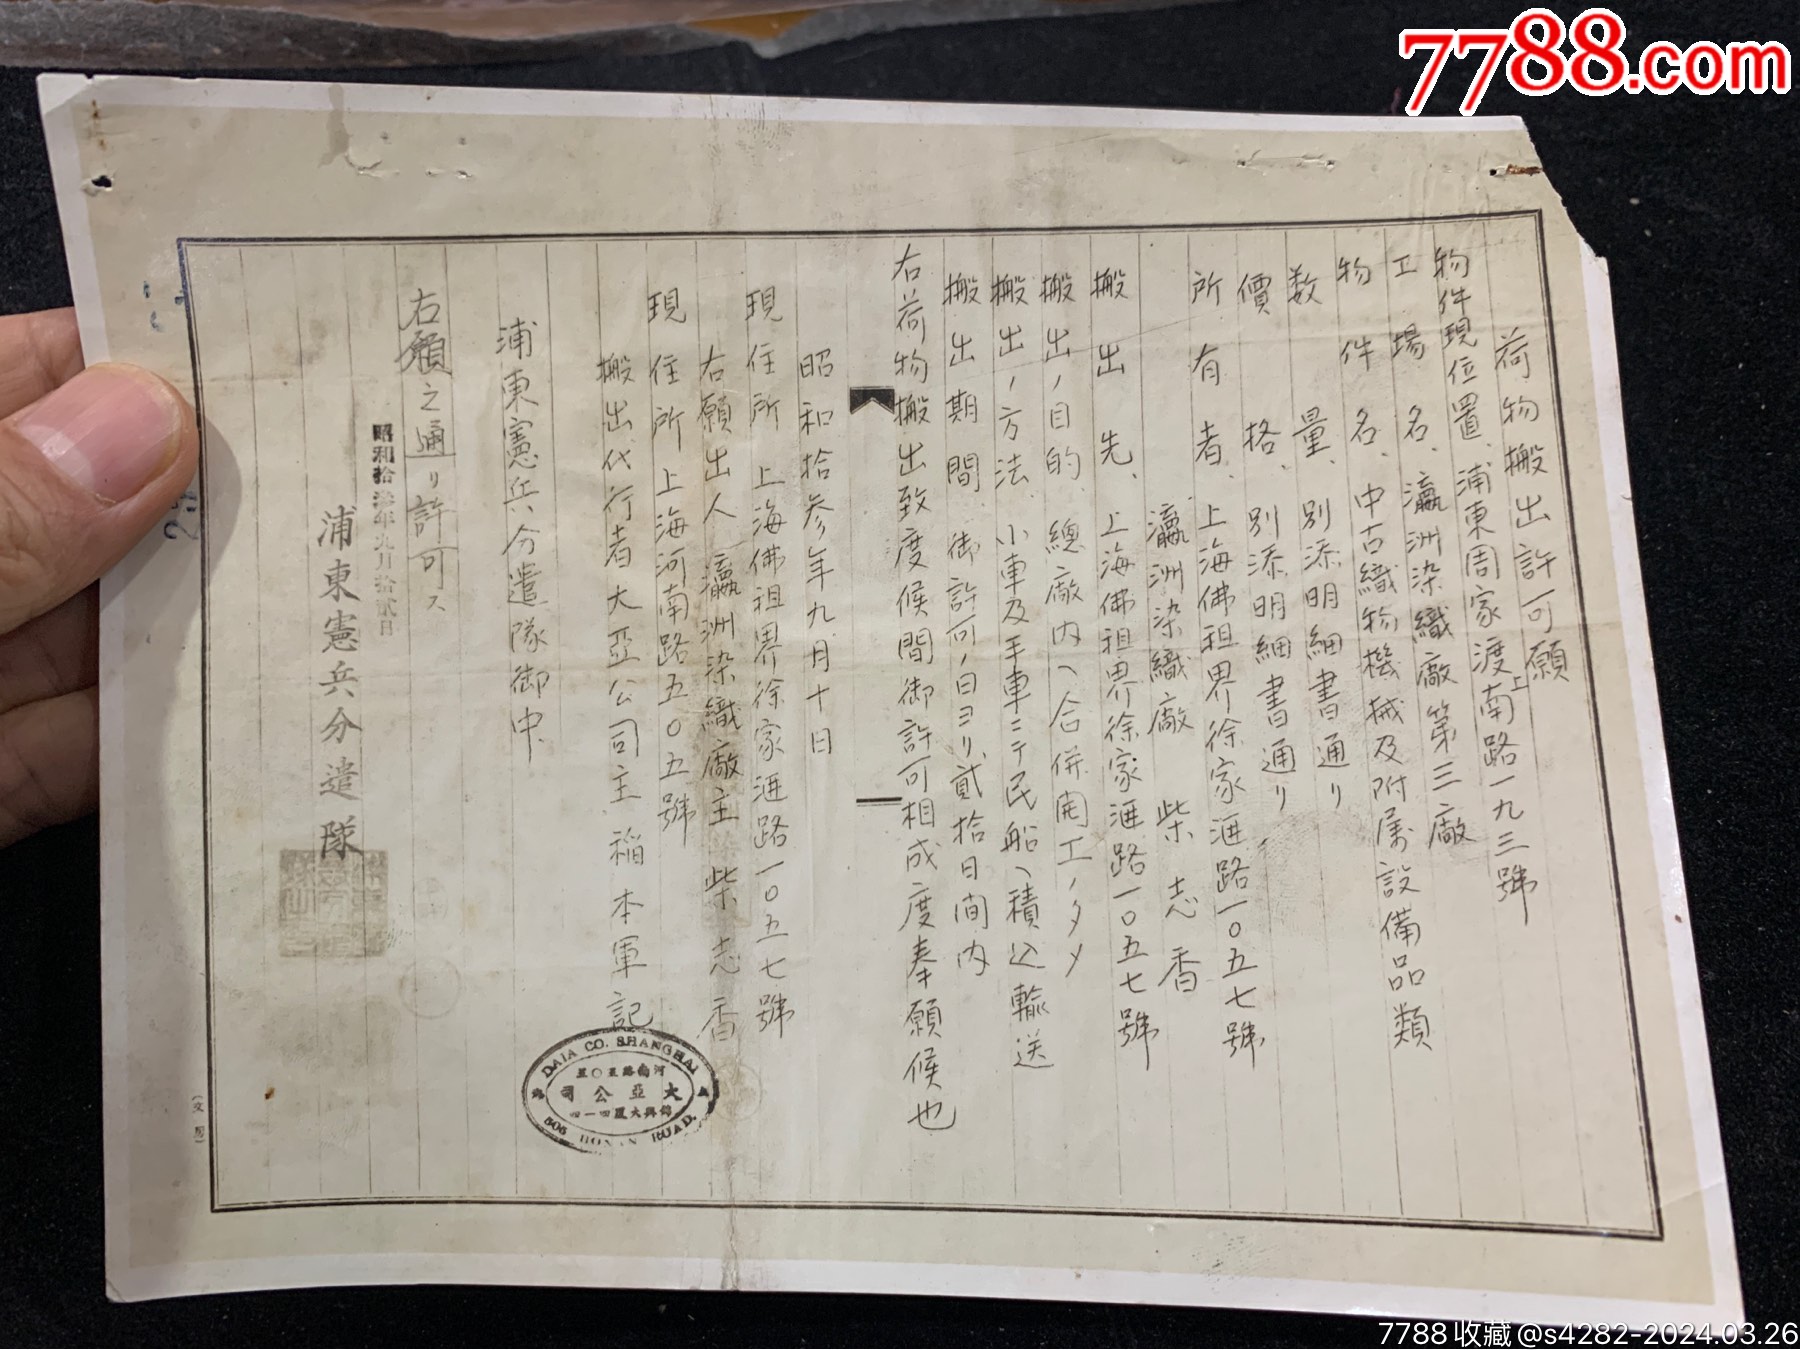 7788.com
荷物搬出許可願
物件現位置、浦東周家渡上南路一九三號
工場名、瀛洲染織廠第三廠
物件名、中古織物機械及附属設備品類
数量、別添明細書通リ
價格、別添明細書通リ
所有者、上海佛祖界徐家滙路一〇五七號
瀛洲染織廠 柴志香
搬出先、上海佛祖界徐家滙路一〇五七號
搬出ノ目的、總廠内ヘ合併開工ノタメ
搬出ノ方法、小車及手車ニテ民船ヘ積込輸送
搬出期間、御許可ノ日ヨリ貳拾日間内
右荷物搬出致度候間御許可相成度奉願候也
昭和拾参年九月十日
現住所 上海佛祖界徐家滙路一〇五七號
右願出人 瀛洲染織廠主 柴志香
現住所 上海河南路五〇五號
搬出代行者大亞公司主 稲本軍記
浦東憲兵分遣隊御中
右願之通リ許可ス
昭和拾年九月拾貳日
浦東憲兵分遣隊
DAIA CO. SHANGHAI
河南路五〇五
大亞公司
大厦四一四
505 HONAN ROAD.
7788收藏@s4282-2024.03.26